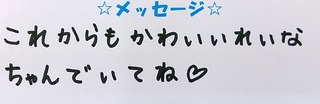 ☆メッセージ☆
これからもかわいいれいな
ちゃんでいてね♡